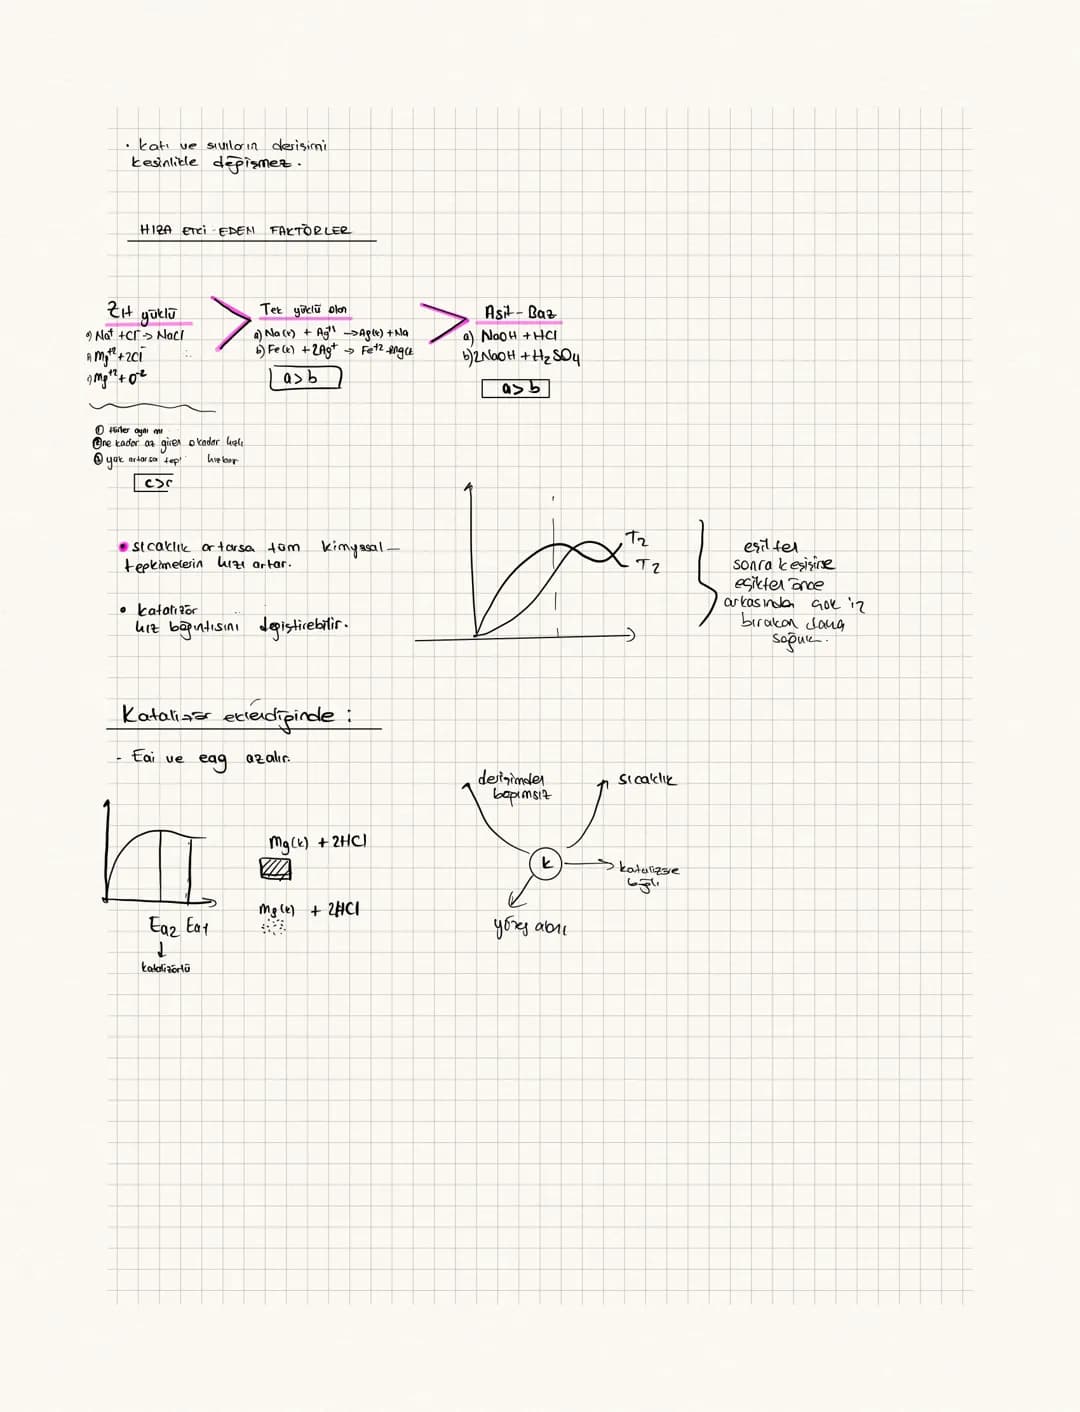 • katı ve sıvıların derişimi
kesinlikle değişmez.
HIZA ETKİ EDEN FAKTÖRLER
Zıt yüklü
a) Na⁺ + Cl⁻ → NaCl
Mg⁺² + 2Cl⁻
Mg⁺² + O⁻²
① türler aynı mı
② ne kadar az giren o kadar hızlı
③ yük artarsa tep.
Tek yüklü olan
a) Na(k) + Ag⁺¹ → Ag(k) + Na
b) Fe(k) + 2Ag⁺ → Fe⁺²
a>b
Asit - Baz
a) NaOH + HCl
b) 2NaOH + H₂SO₄
a>b
• sıcaklık artarsa tüm kimyasal
tepkimelerin hızı artar.
• katalizör
hız bağıntısını değiştirebilir.
T₂
T₂
eşikten
sonra kesişirse
eşikten önce
arkasında çok iz
bırakan daha
soğuk.
Katalizör eklendiğinde :
- Eai ve eag azalır.
Ea₂ Ea₁
↓
katalizörlü
Mg(k) + 2HCl
Mg(k) + 2HCl
derişimden
bağımsız
sıcaklık
k
katalizöre
bağlı
yüzey alanı